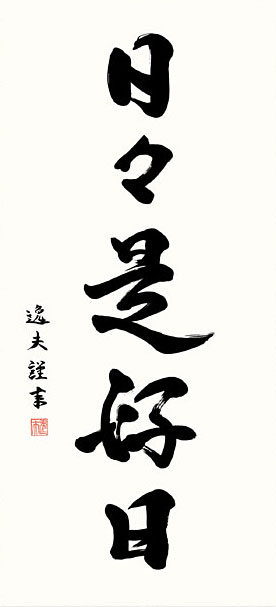 日々是好日
逸夫謹書